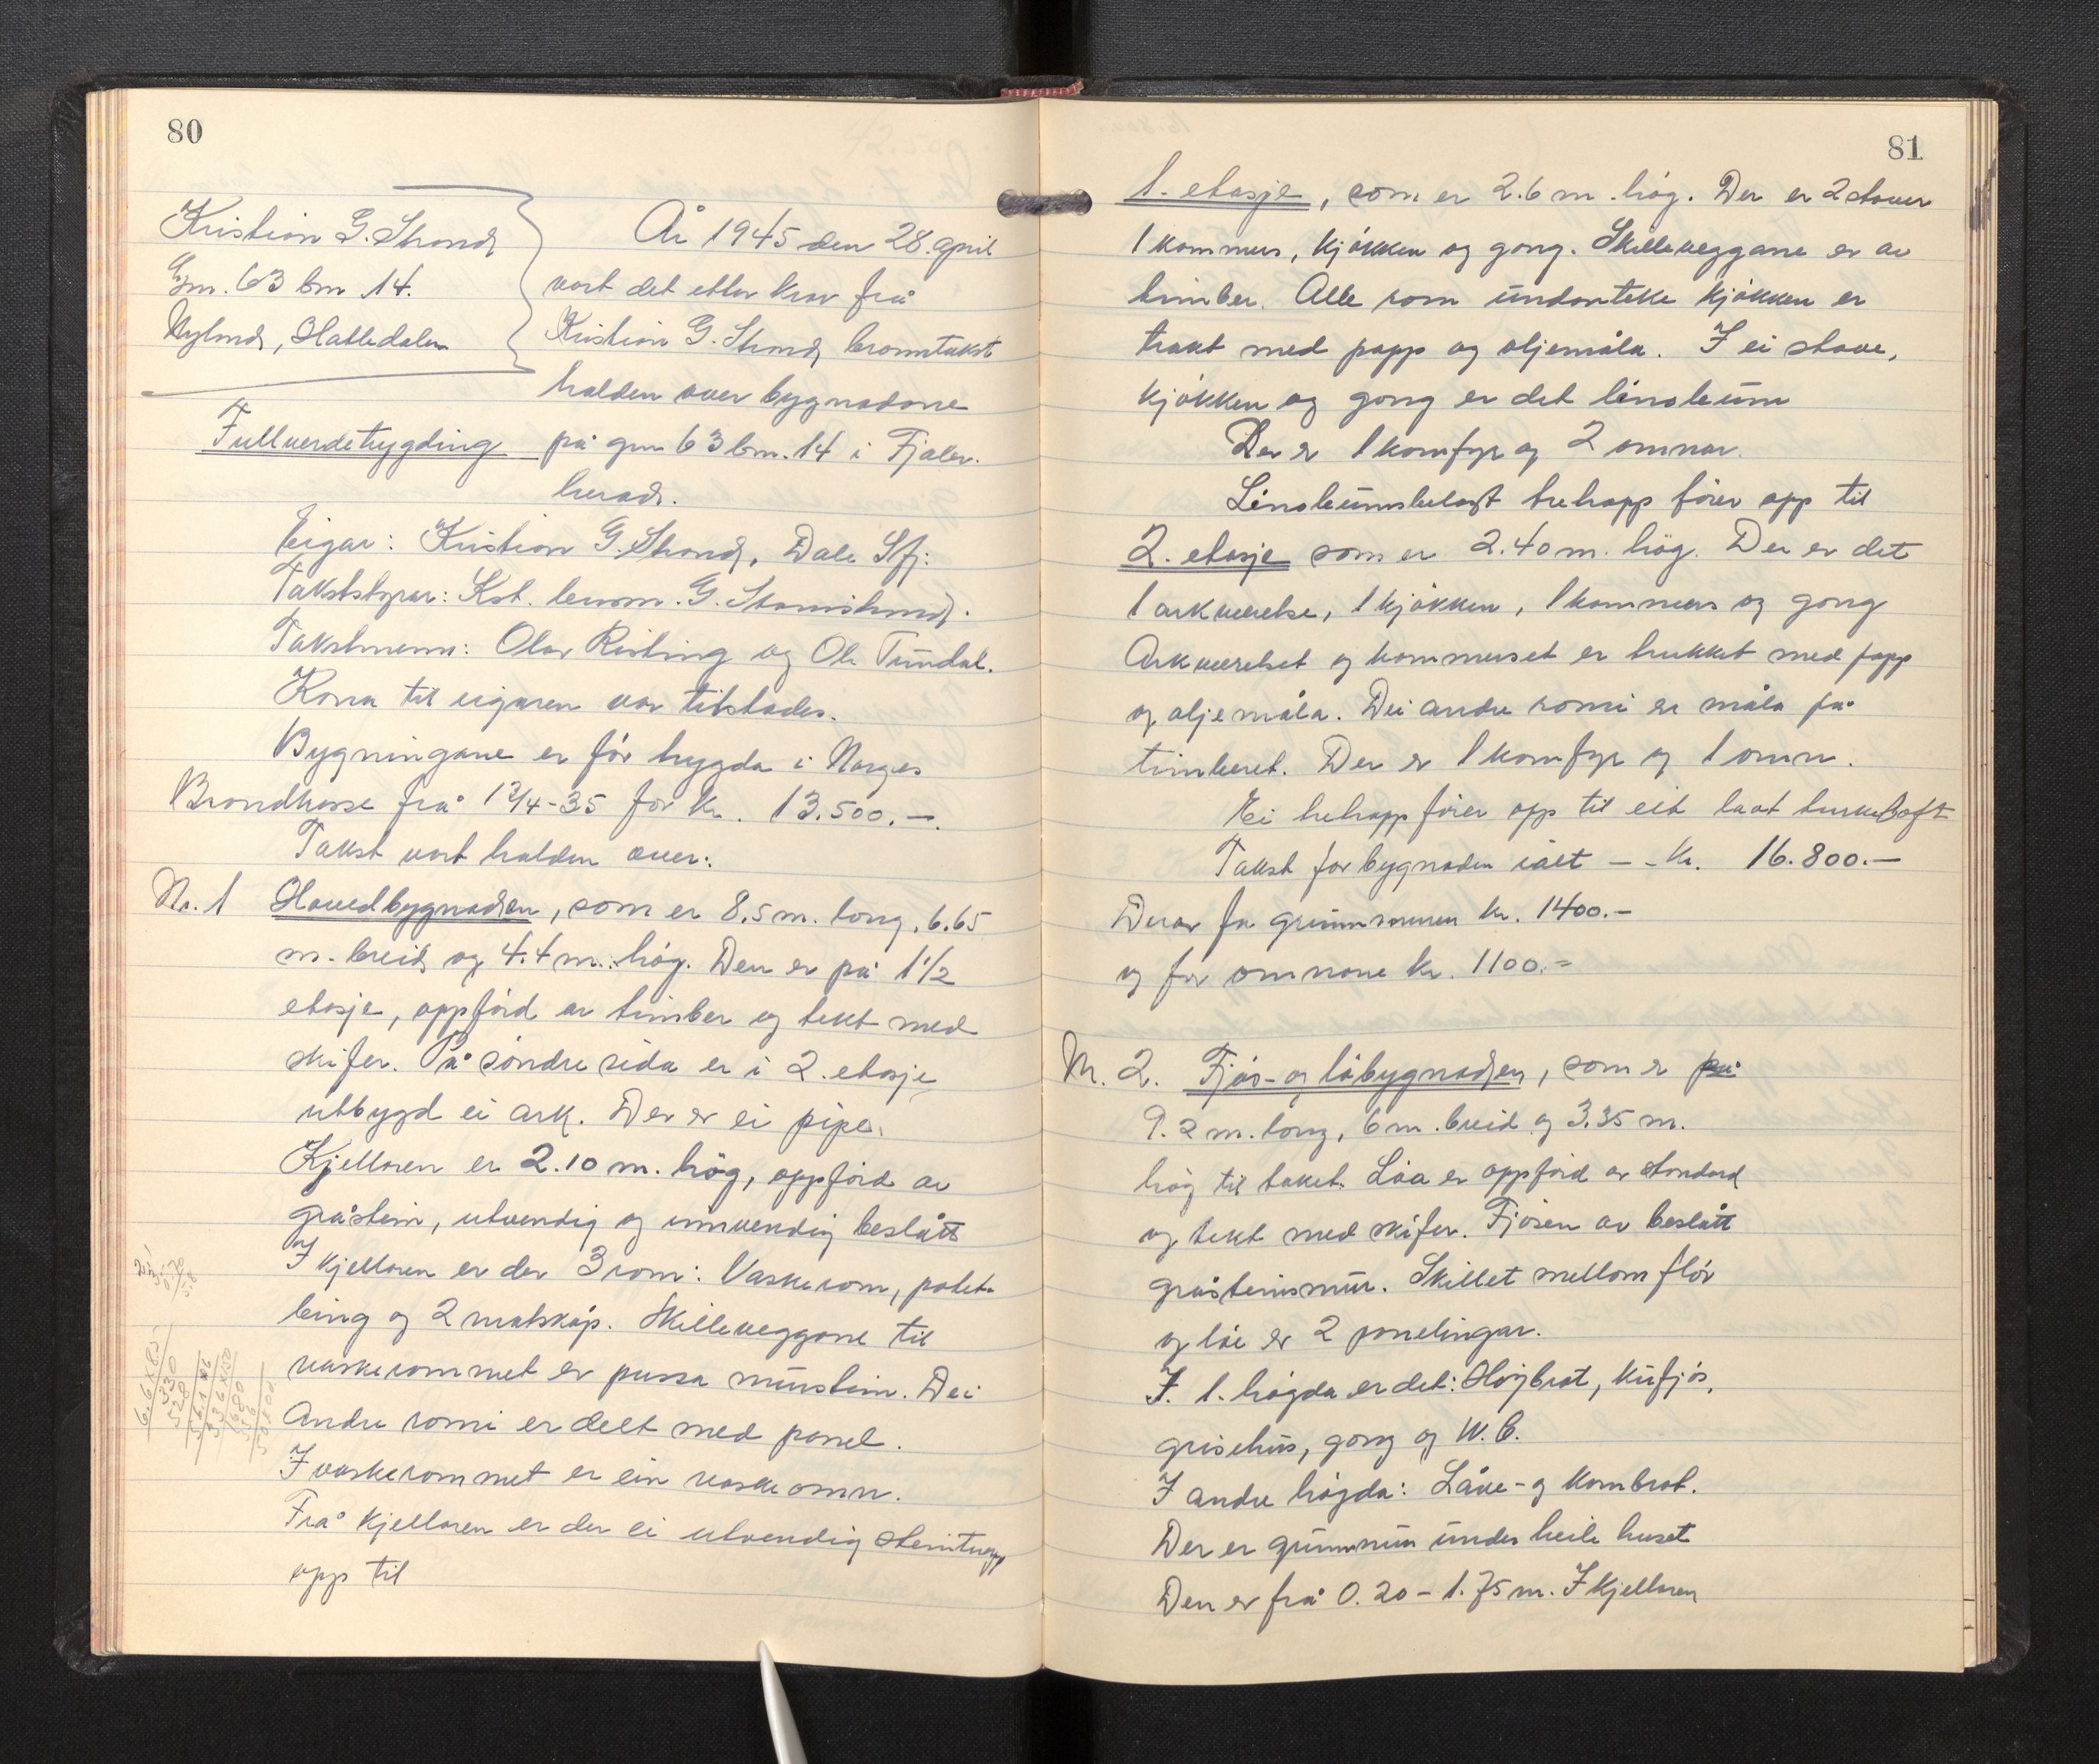 80
Kristian G. Strand,
Gn. 63 bn. 14.
Nylund, Hatledalen
Fullverdetrygding
År 1945 den 28. april
vart det etter krav frå
Kristian G. Strand, branntakst
halden over bygnadane
på gnr 63 bn. 14 i Fjaler
herad.
Eigar: Kristian G. Strand, Dale Sfj.
Takststyrar: Kst. lensm. G.
Takstmenn: Olav Risting og Ole Tundal.
Kona til eigaren var tilstades.
Bygningane er før trygda i Norges
Brandkasse frå 13/4-35 for kr. 13.500.-.
Takst vart halden over:
Nr. 1 Hovedbygnaden, som er 8.5 m. lang, 6.65
m. breid og 4.4 m. høg. Den er på 1 1/2
etasje, oppførd av timber og tekt med
skifer. På søndre sida er i 2. etasje
utbygd ei ark. Der er ei pipe.
Kjellaren er 2.10 m. høg, oppførd av
gråstein, utvendig og innvendig beslått
I kjellaren er der 3 rom: Vaskerom, potet-
bing og 2 matskåp. Skilleveggane til
vaskerommet er pussa murstein. Dei
andre romi er delt med panel.
I vaskerommet er ein vaskeomn.
Frå kjellaren er der ei utvendig steintrapp
opp til
81
1. etasje, som er 2.6 m. høg. Der er 2 stover
1 kammers, kjøkken og gang. Skilleveggane er av
timber. Alle rom undanteke kjøkken er
trekt med papp og oljemåla. I ei stove,
kjøkken og gang er det linoleum
Der er 1 komfyr og 2 omnar.
Linoleumsbelagt tretrapp fører opp til
2. etasje som er 2.40 m. høg. Der er det
1 arkværelse, 1 kjøkken, 1 kammers og gang
Arkværelset og kammerset er trukket med papp
og oljemåla. Dei andre romi er måla på
timberet. Der er 1 komfyr og 1 omn.
Ei tretrapp fører opp til eit lavt turkeloft
Takst for bygnaden ialt - - kr. 16.800.-
Derav for grunnmuren kr. 1400.-
og for omnane kr. 1100.-
Nr. 2. Fjøs- og løbygnaden, som er på
9.2 m. lang, 6 m. breid og 3.35 m.
høg til taket. Løa er oppførd av standard
og tekt med skifer. Fjøsen av beslått
gråsteinsmur. Skillet mellom flor
og løe er 2 panelingar.
I 1. høgda er det: Høybrot, kufjøs,
grisehus, gang og W.C.
I andre høgda: Låve- og kornbrot.
Der er grunnmur under heile huset
Den er frå 0.20 - 1.75 m. I kjellaren